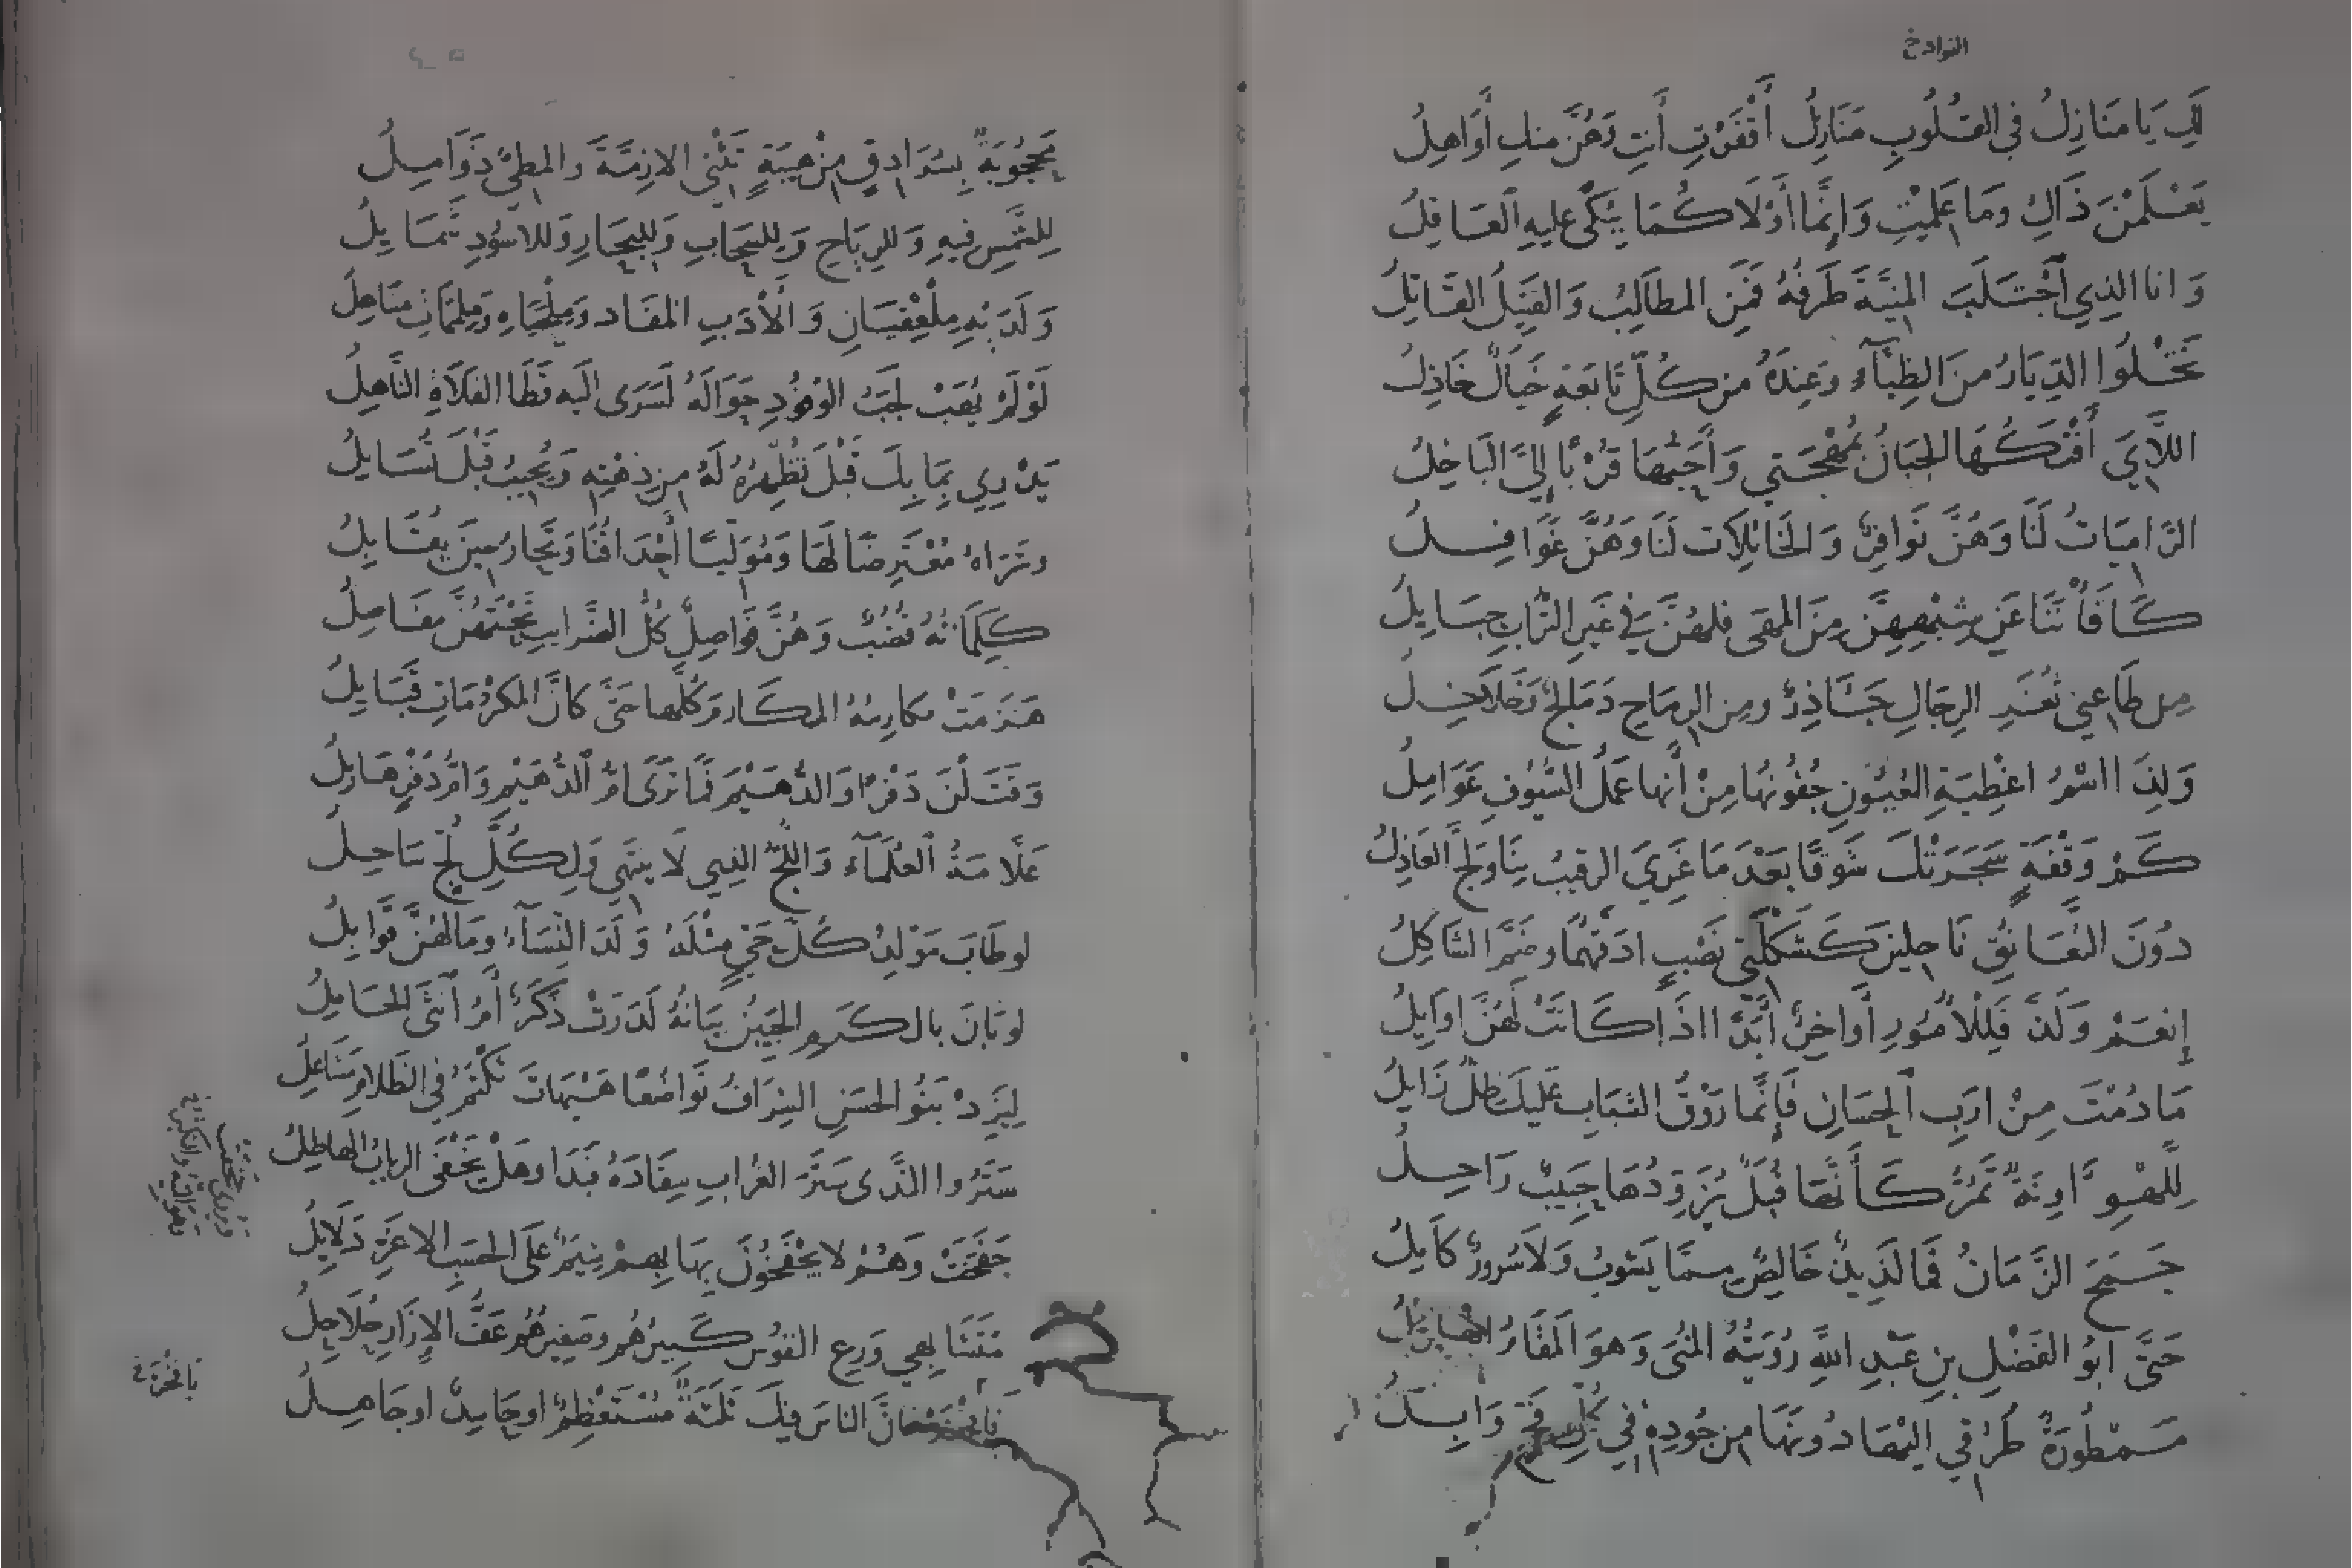 لَكِ يَا مَنَازِلُ في القُلُوبِ مَنَازِلُ أَقْفَرْتِ أَنتِ وَهُنَّ منكِ أَوَاهِلُ
يَعْلَمْنَ ذَاكِ ومَا عَلِمْتِ وَإِنَّمَا أَوْلَاكُمَا يُبْكَى عليهِ العَاقِلُ
وَانا الذِي اجْتَلَبَ المنِيَّةَ طَرْفُهُ فَمَنِ المطَالِبُ وَالقَتِيلُ القَاتِلُ
تَخْلُوا الدِّيَارُ منَ الظِّبَآءِ وَعِندَهُ من كُلِّ تَابعَةٍ خَيَالٌ خَاذِلُ
اللَّآيِ أَفْتَكُهَا الجَبَانُ بمُهْجَتي وَأَحَبُّهَا قُرْبًا إِليَّ البَاخِلُ
الرَّامِيَاتُ لَنَا وَهُنَّ نَوَافِرٌ وَالخَاتِلَات لَنَا وَهُنَّ غَوَافِلُ
كَافَأْنَنَا عَن شِبْهِهِنَّ مِنَ المهَى فلهُنَّ في غَيرِ التُّرَابِ حبَايلُ
مِن طَاعِني ثُغَرِ الرِجَالِ جَآذِرٌ ومِنَ الرِمَاحِ دَمَالِجٌ وَخَلَاخِلُ
وَلِذَا اسْمُ اغْطِيَةِ العُيُونِ جُفُونُهَا مِنْ أَنهَا عَمَلَ السُّيُوفِ عَوَامِلُ
كَمْ وَقْفَةٍ سَجَرَتْكَ شَوقًا بَعْدَ مَا غَرِيَ الرقيبُ بِنَا وَلَجَّ العَاذِلُ
دُونَ التعَانُقِ نَاحِلينَ كَشَكْلَتَي نَصْبٍ ادَقَّهُمَا وضَمَّ الشَّاكِلُ
إِنعَمْ وَلَذَّ فَلِلْأمُورِ أَوَاخِرٌ أَبَدًا اذَا كَانَتْ لَهُنَّ اوَايِلُ
مَا دُمْتَ مِنْ ارَبِ الحِسَانِ فَإِنَّمَا رَوْقُ الشبَابِ عَليكَ ظِلٌّ زَايلُ
لِلَّهْوِ آوِنَةٌ تَمُرُّ كَأَنَّهَا قُبَلٌ يُزَوَّدُهَا حَبِيبٌ رَاحِلُ
جَمَحَ الزَّمَانُ فَمَا لَذِيذٌ خَالِصٌ ممَّا يَشُوبُ وَلَا سُرورٌ كَامِلُ
حَتَّى ابُو الفَضْلِ بنِ عَبْدِ اللهِ رُؤيَتُهُ المُنَى وَهوَ المَقَامُ الهَايلُ
مَمْطُورَةٌ طُرُقي اليْهَا دُونَهَا من جُودِهِ في كُلِّ فَجٍّ وَابِلُ
مَحْجُوبَةٌ بِسُرَادِقٍ مِنْ هَيبَةٍ تَثْنِي الازِمَّةَ والمطِيُّ ذَوَامِلُ
لِلشَّمسِ فيهِ وَللرِيَاحِ وَللسَحَابِ وَللبِحَارِ وَللاسُودِ شَمَايِلُ
وَلَدَيْهِ مِلْعِقْيَانِ وَالْأَدَبِ المفَاد وَمِلْحَيَاهِ وَمِلْمَمَاتِ مَنَاهِلُ
لَوْ لَمْ يُهَبْ لَجَبُ الوُفُودِ حَوَالَهُ لَسَرَى اليَهِ قَطَا الفَلَاةِ النَّاهِلُ
يَدْرِي بِمَا بِكَ قَبْلَ تُظْهِرُهُ لَهُ مِن ذِهْنِهِ وَيُجِيبُ قَبْلَ تُسَايلُ
وتَرَاهُ مُعْتَرِضًا لَهَا وَمُوَلِّيًا أَحْدَاقُنَا وَتَحَارُ حِينَ يقَابِلُ
كَلِمَاتُهُ قُضُبٌ وَهُنَّ فَوَاصِلٌ كُلُّ الضَّرَايبِ تَحْتَهُنَّ مفَاصِلُ
هَزَمَتْ مكَارِمُهُ المكَارمَ كُلَّهَا حَتَّى كَانَّ المَكرُمَاتِ قَبَايلُ
وَقَتَلْنَ دَفْرًا وَالدُّهَيْمَ فَمَا تَرَى امُّ الدُّهَيْمِ وَامُّ دَفْرٍ هَابِلُ
عَلَّامَةُ العُلَمَآءِ وَاللُّجُّ الذِي لَا ينتَهِي وَلِكُلِّ لُجٍّ سَاحِلُ
لو طَابَ مَوْلِدُ كُلِّ حَيٍّ مِثْلَهُ وَلَدَ النِّسَآءُ ومَا لهُنَّ قَوَابِلُ
لو بَانَ بالكَرَمِ الجَنِينُ بيَانَهُ لَدَرَتْ ذَكَرٌ أَمْ أُنثَى الحَامِلُ
لِيَزِدْ بَنُو الحَسَنِ الشِرَافُ تَوَاضُعًا هَيْهَاتَ تُكْتَمُ في الظَلامِ مَشَاعِلُ
سَتَرُوا النَّدَى سَتْرَ الغُرَابِ سِفَادَهُ فَبَدَا وهَلْ يَخْفَى الربابُ الهَاطِلُ
جَفَخَتْ وَهُمْ لا يَجْفَخُونَ بِهَا بِهِمْ شِيَمٌ عَلَى الحَسَبِ الاغَرِّ دَلَايِلُ
مُتَشَابِهِي وَرَعِ النفُوسِ كَبِيرُهُم وصَغِيرُهُم عَفُّ الإِزَارِ حُلَاحِلُ
النَاسَ فيكَ ثَلثَةٌ مُسْتَعْظِمٌ اوحَاسِدٌ اوجَاهِلُ